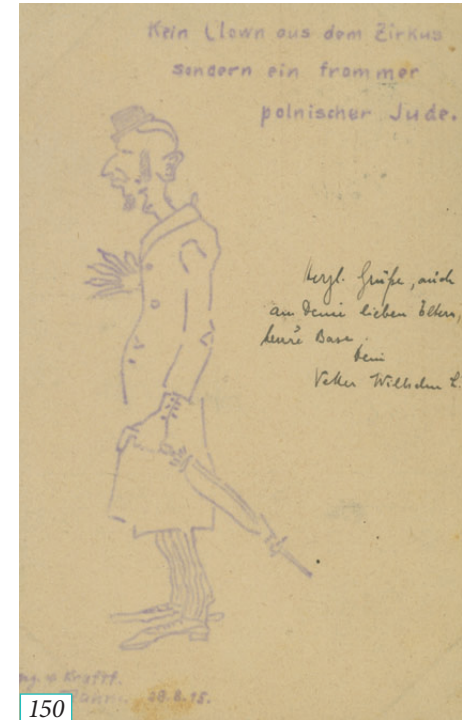 Kein Clown aus dem Zirkus
sondern ein frommer
polnischer Jude.
Herzl. Grüße, auch
an Deine lieben Eltern,
teure Base.
Dein
Vetter Wilhelm L.
28.8.15.
150